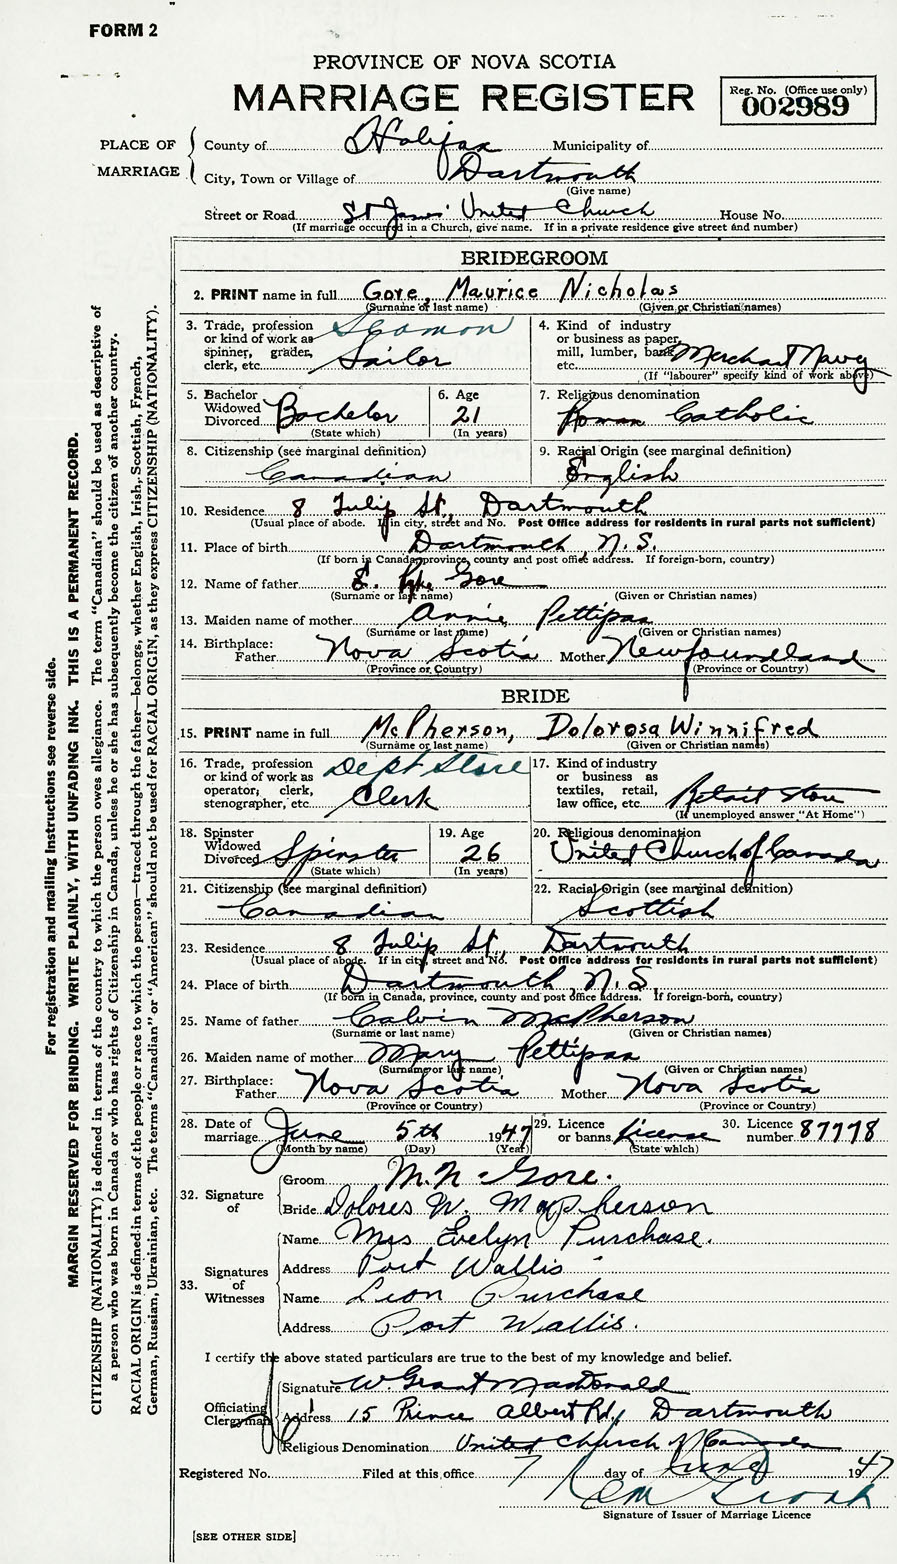 FORM 2
PROVINCE OF NOVA SCOTIA
MARRIAGE REGISTER
Reg. No. (Office use only)
002989
PLACE OF MARRIAGE
County of Halifax Municipality of
City, Town or Village of Dartmouth
(Give name)
Street or Road St James' United Church House No.
(If marriage occurred in a Church, give name. If in a private residence give street and number)
BRIDEGROOM
2. PRINT name in full Gore, Maurice Nicholas
(Surname or last name) (Given or Christian names)
3. Trade, profession or kind of work as spinner, grader, clerk, etc. Seaman Sailor
4. Kind of industry or business as paper mill, lumber, bank, etc. Merchant Navy
(If "labourer" specify kind of work above)
5. Bachelor Widowed Divorced Bachelor
(State which)
6. Age 21
(In years)
7. Religious denomination
Roman Catholic
8. Citizenship (see marginal definition)
Canadian
9. Racial Origin (see marginal definition)
English
10. Residence 8 Tulip St., Dartmouth
(Usual place of abode. If in city, street and No. Post Office address for residents in rural parts not sufficient)
11. Place of birth Dartmouth N.S.
(If born in Canada, province, county and post office address. If foreign-born, country)
12. Name of father Gore
(Surname or last name) (Given or Christian names)
13. Maiden name of mother Annie Pettipas
(Surname or last name) (Given or Christian names)
14. Birthplace: Father Nova Scotia Mother Newfoundland
(Province or Country) (Province or Country)
BRIDE
15. PRINT name in full McPherson, Dolorosa Winnifred
(Surname or last name) (Given or Christian names)
16. Trade, profession or kind of work as operator, clerk, stenographer, etc. Dept Store Clerk
17. Kind of industry or business as textiles, retail, law office, etc. Retail Store
(If unemployed answer "At Home")
18. Spinster Widowed Divorced Spinster
(State which)
19. Age 26
(In years)
20. Religious denomination
United Church of Canada
21. Citizenship (see marginal definition)
Canadian
22. Racial Origin (see marginal definition)
Scottish
23. Residence 8 Tulip St., Dartmouth
(Usual place of abode. If in city, street and No. Post Office address for residents in rural parts not sufficient)
24. Place of birth Dartmouth N.S.
(If born in Canada, province, county and post office address. If foreign-born, country)
25. Name of father Calvin McPherson
(Surname or last name) (Given or Christian names)
26. Maiden name of mother Mary Pettipas
(Surname or last name) (Given or Christian names)
27. Birthplace: Father Nova Scotia Mother Nova Scotia
(Province or Country) (Province or Country)
28. Date of marriage June 5th 1947
(Month by name) (Day) (Year)
29. Licence or banns License
(State which)
30. Licence number 87778
32. Signature of
Groom M. N. Gore.
Bride Dolores W. MacPherson
33. Signatures of Witnesses
Name Mrs Evelyn Purchase.
Address Port Wallis
Name Leon Purchase
Address Port Wallis.
I certify the above stated particulars are true to the best of my knowledge and belief.
Officiating Clergyman
Signature W. Grant MacDonald
Address 15 Prince Albert Rd, Dartmouth
Religious Denomination United Church of Canada
Registered No. Filed at this office 7 day of June 1947
Signature of Issuer of Marriage Licence
[SEE OTHER SIDE]
For registration and mailing instructions see reverse side.
MARGIN RESERVED FOR BINDING. WRITE PLAINLY, WITH UNFADING INK. THIS IS A PERMANENT RECORD.
CITIZENSHIP (NATIONALITY) is defined in terms of the country to which the person owes allegiance. The term "Canadian" should be used as descriptive of
a person who was born in Canada or who has rights of Citizenship in Canada, unless he or she has subsequently become the citizen of another country.
RACIAL ORIGIN is defined in terms of the people or race to which the person—traced through the father—belongs, whether English, Irish, Scottish, French,
German, Russian, Ukrainian, etc. The terms "Canadian" or "American" should not be used for RACIAL ORIGIN, as they express CITIZENSHIP (NATIONALITY).